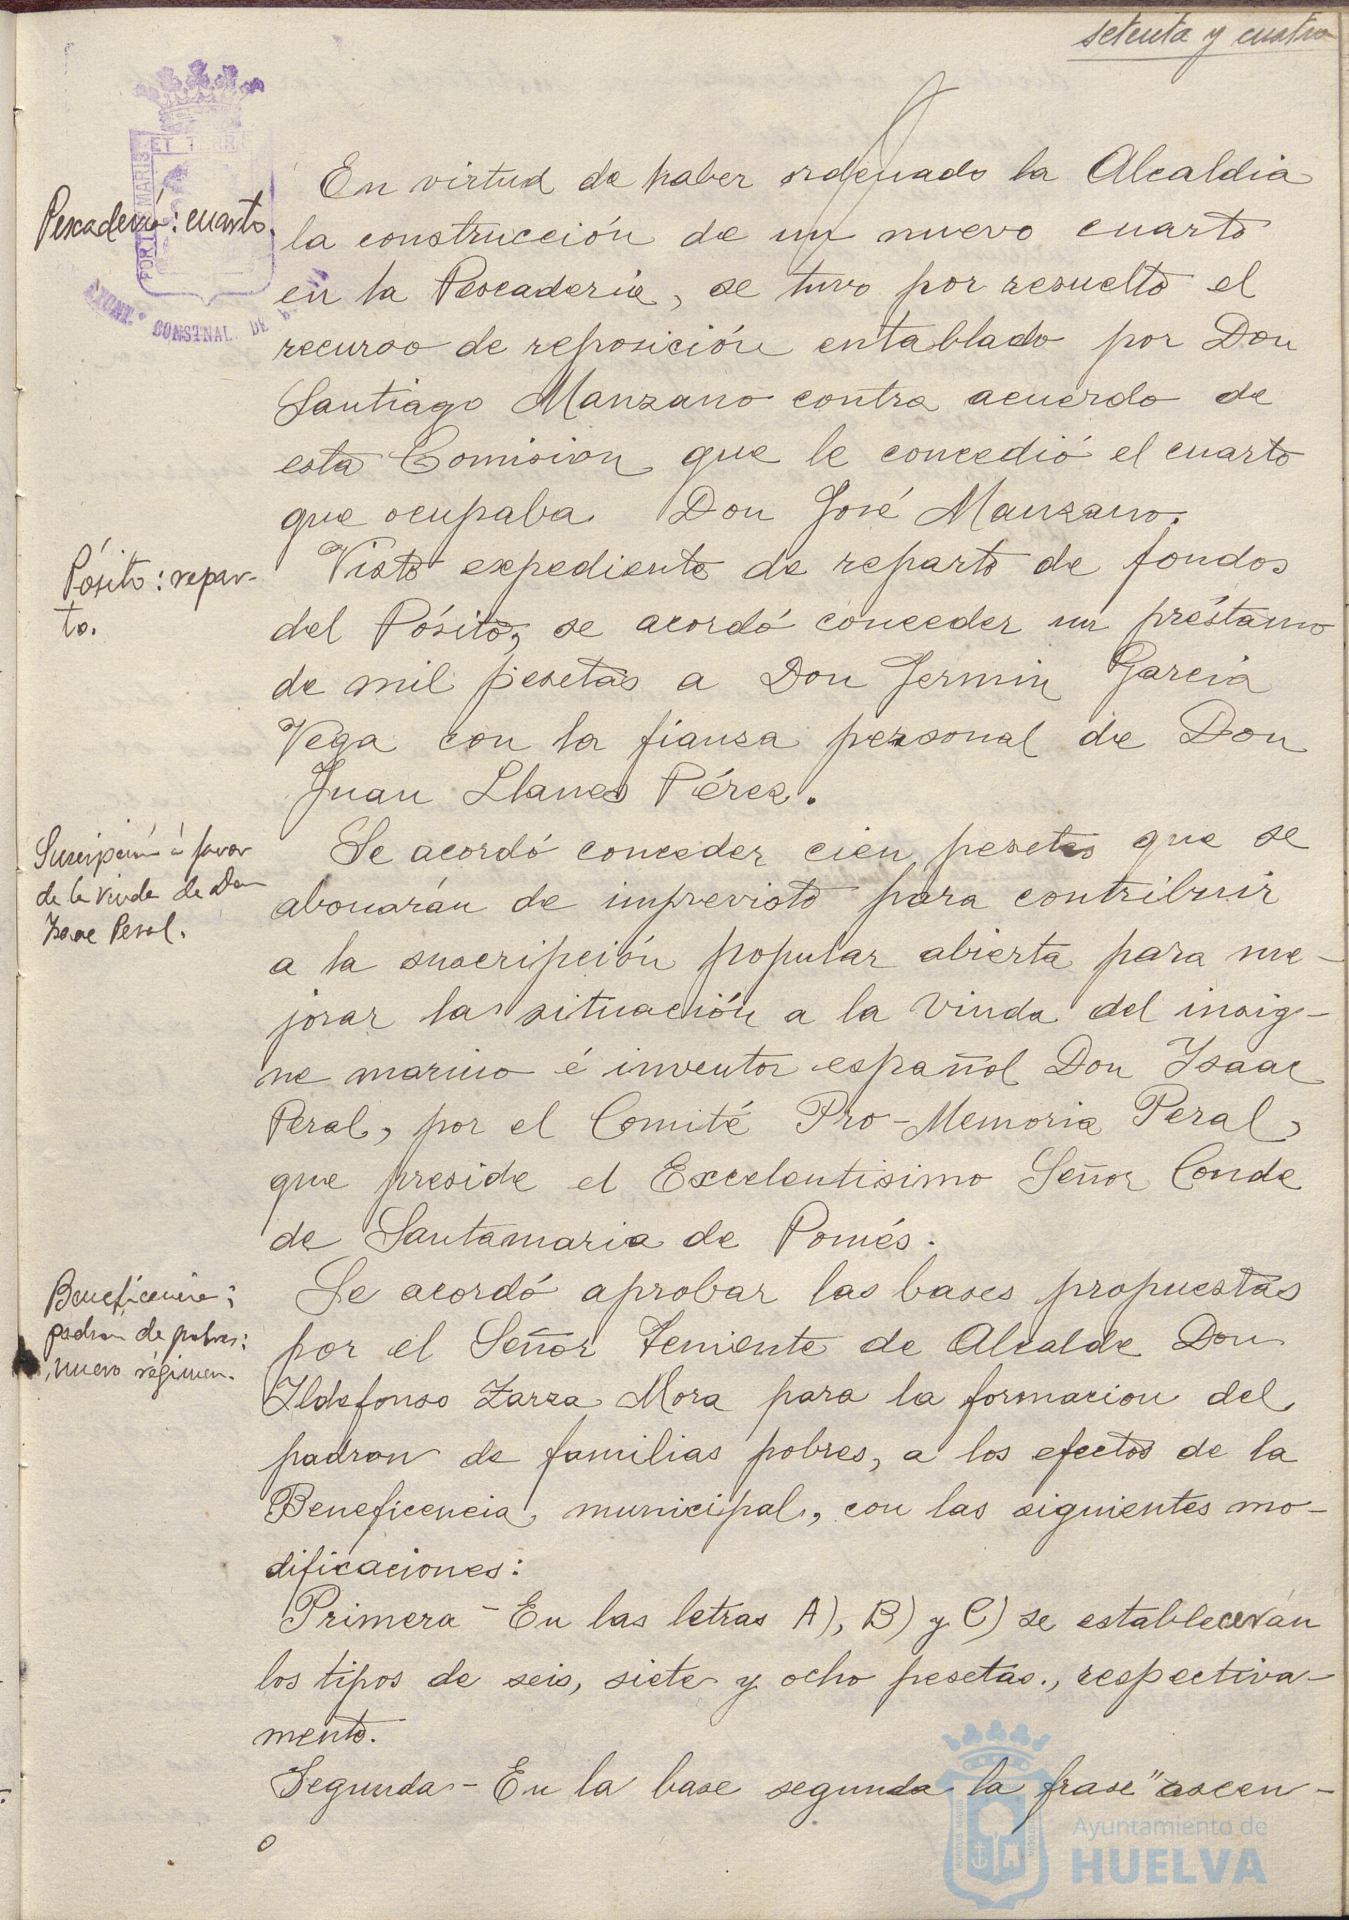 setenta y cuatro
Pescadería: cuarto.
En virtud de haber ordenado la Alcaldia
la construcción de un nuevo cuarto
en la Pescaderia, se tuvo por resuelto el
recurso de reposición entablado por Don
Santiago Manzano contra acuerdo de
esta Comision que le concedió el cuarto
que ocupaba Don José Manzano.
Pósito: repar-
to.
Visto expediente de reparto de fondos
del Pósito, se acordó conceder un préstamo
de mil pesetas a Don Fermin Garcia
Vega con la fianza personal de Don
Juan Llanes Pérez.
Suscripción á favor
de la viuda de Don
Isaac Peral.
Se acordó conceder cien pesetas que se
abonarán de imprevisto para contribuir
a la suscripción popular abierta para me-
jorar la situación a la Viuda del insig-
ne marino é inventor español Don Isaac
Peral, por el Comité Pro-Memoria Peral,
que preside el Excelentisimo Señor Conde
de Santamaria de Pomés.
Beneficencia:
padron de pobres:
nuevo régimen.
Se acordó aprobar las bases propuestas
por el Señor Teniente de Alcalde Don
Ildefonso Zarza Mora para la formacion del
padron de familias pobres, a los efectos de la
Beneficencia municipal, con las siguientes mo-
dificaciones:
Primera - En las letras A), B) y C) se establecerán
los tipos de seis, siete y ocho pesetas., respectiva-
mente.
Segunda - En la base segunda la frase "ascen-
PORTUS MARIS ET TERRAE
AYUNT. CONSTNAL. DE
Ayuntamiento de
HUELVA